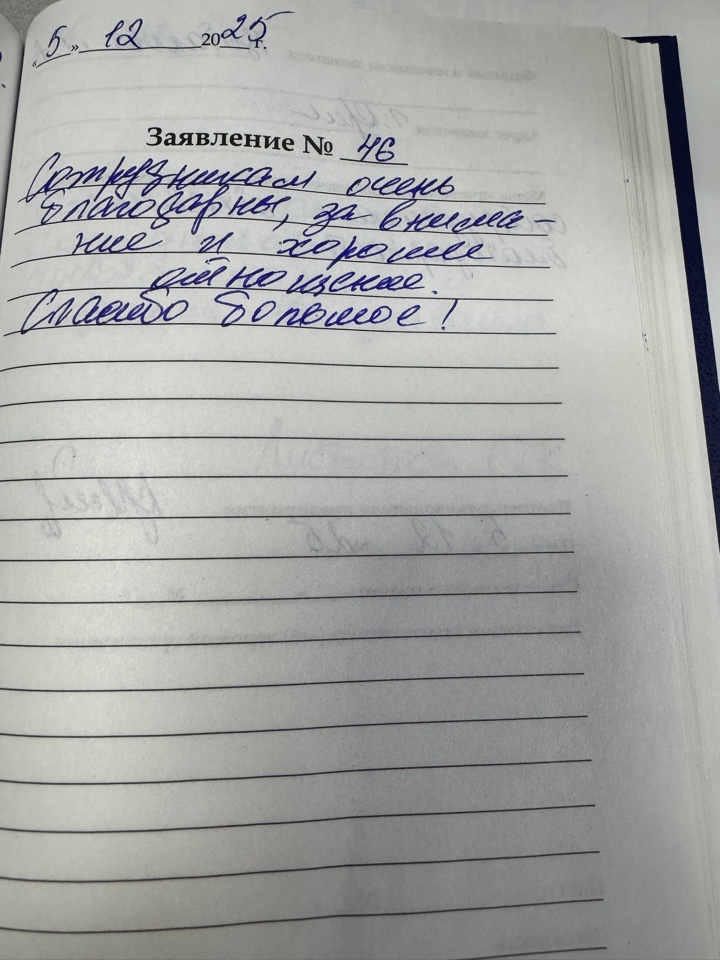 « 5 » 12 2025 г.
Заявление № 46
Сотрудникам очень
благодарны, за внима-
ние и хорошие
отношение.
Спасибо большое!